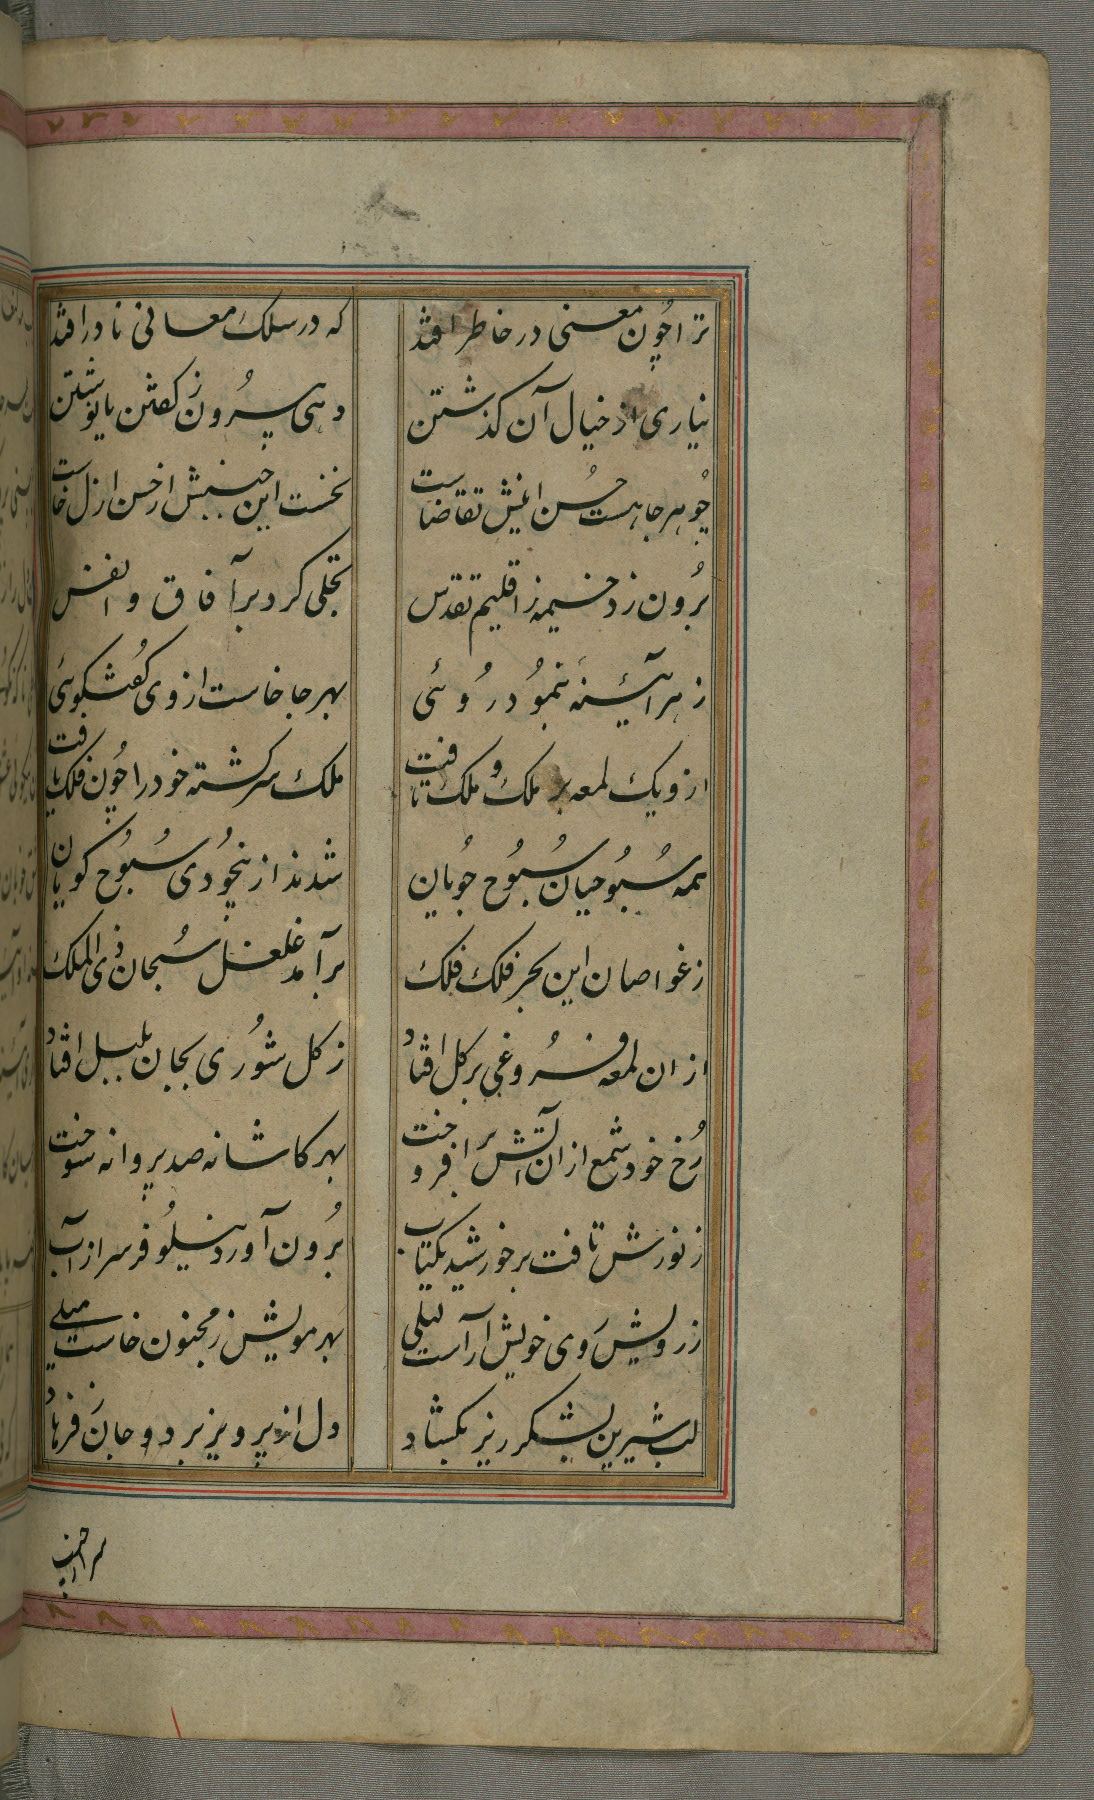 ترا چون معنی در خاطر افتد
که در سلک معانی نادر افتد
نیاری از خیال آن گذشتن
دهی پیرون ز گفتن یا نوشتن
چو هر جا هست حسن اینش تقاضاست
نخست این جنبش از حسن ازل خاست
برون زد خیمه ز اقلیم تقدس
تجلی کرد بر آفاق و انفس
ز هر آئینه ئی بنمود روئی
بهر جا خاست از وی گفتگوئی
ازو یک لمعه بر ملک و ملک تافت
ملک سرگشته خود را چون فلک یافت
همه سبوحیان سبوح جویان
شدند از بیخودی سبوح گویان
ز غواصان این بحر فلک فلک
برآمد غلغل سبحان ذی الملک
ازان لمعه فروغی بر گل افتاد
ز گل شوری بجان بلبل افتاد
رخ خود شمع ازان آتش برافروخت
بهر کاشانه صد پروانه سوخت
ز نورش تافت بر خورشید یکتاب
برون آورد نیلوفر سر از آب
ز رویش روی خویش آراست لیلی
بهر مویش ز مجنون خاست میلی
لب شیرین بشکر ریز بگشاد
دل از پرویز برد و جان ز فرهاد
سر از جیب